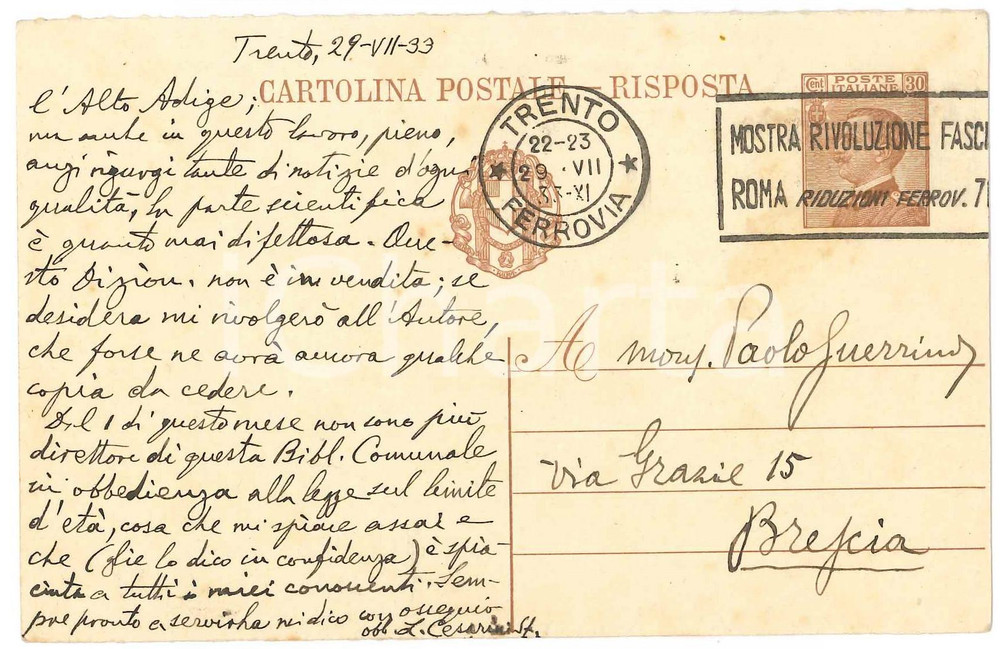 Trento, 29-VII-33
CARTOLINA POSTALE - RISPOSTA
Cent POSTE ITALIANE 30
TRENTO
22-23
29 . VII
33-XI
FERROVIA
MOSTRA RIVOLUZIONE FASCI
ROMA RIDUZIONI FERROV. 7
l'Alto Adige;
ma anche in questo lavoro, pieno,
anzi rigurgitante di notizie d'ogni
qualità, la parte scientifica
è quanto mai difettosa. Que-
sto Dizion. non è in vendita; se
desidera mi rivolgerò all'Autore,
che forse ne avrà ancora qualche
copia da cedere.
Dal 1 di questo mese non sono più
direttore di questa Bibl. Comunale
in obbedienza alla legge sul limite
d'età, cosa che mi spiace assai e
che (glie lo dico in confidenza) è spia-
ciuta a tutti i miei conoscenti. Sem-
pre pronto a servirla mi dico con ossequio
obb L. Cesarini Sf.
A mons. Paolo Guerrini
Via Grazie 15
Brescia